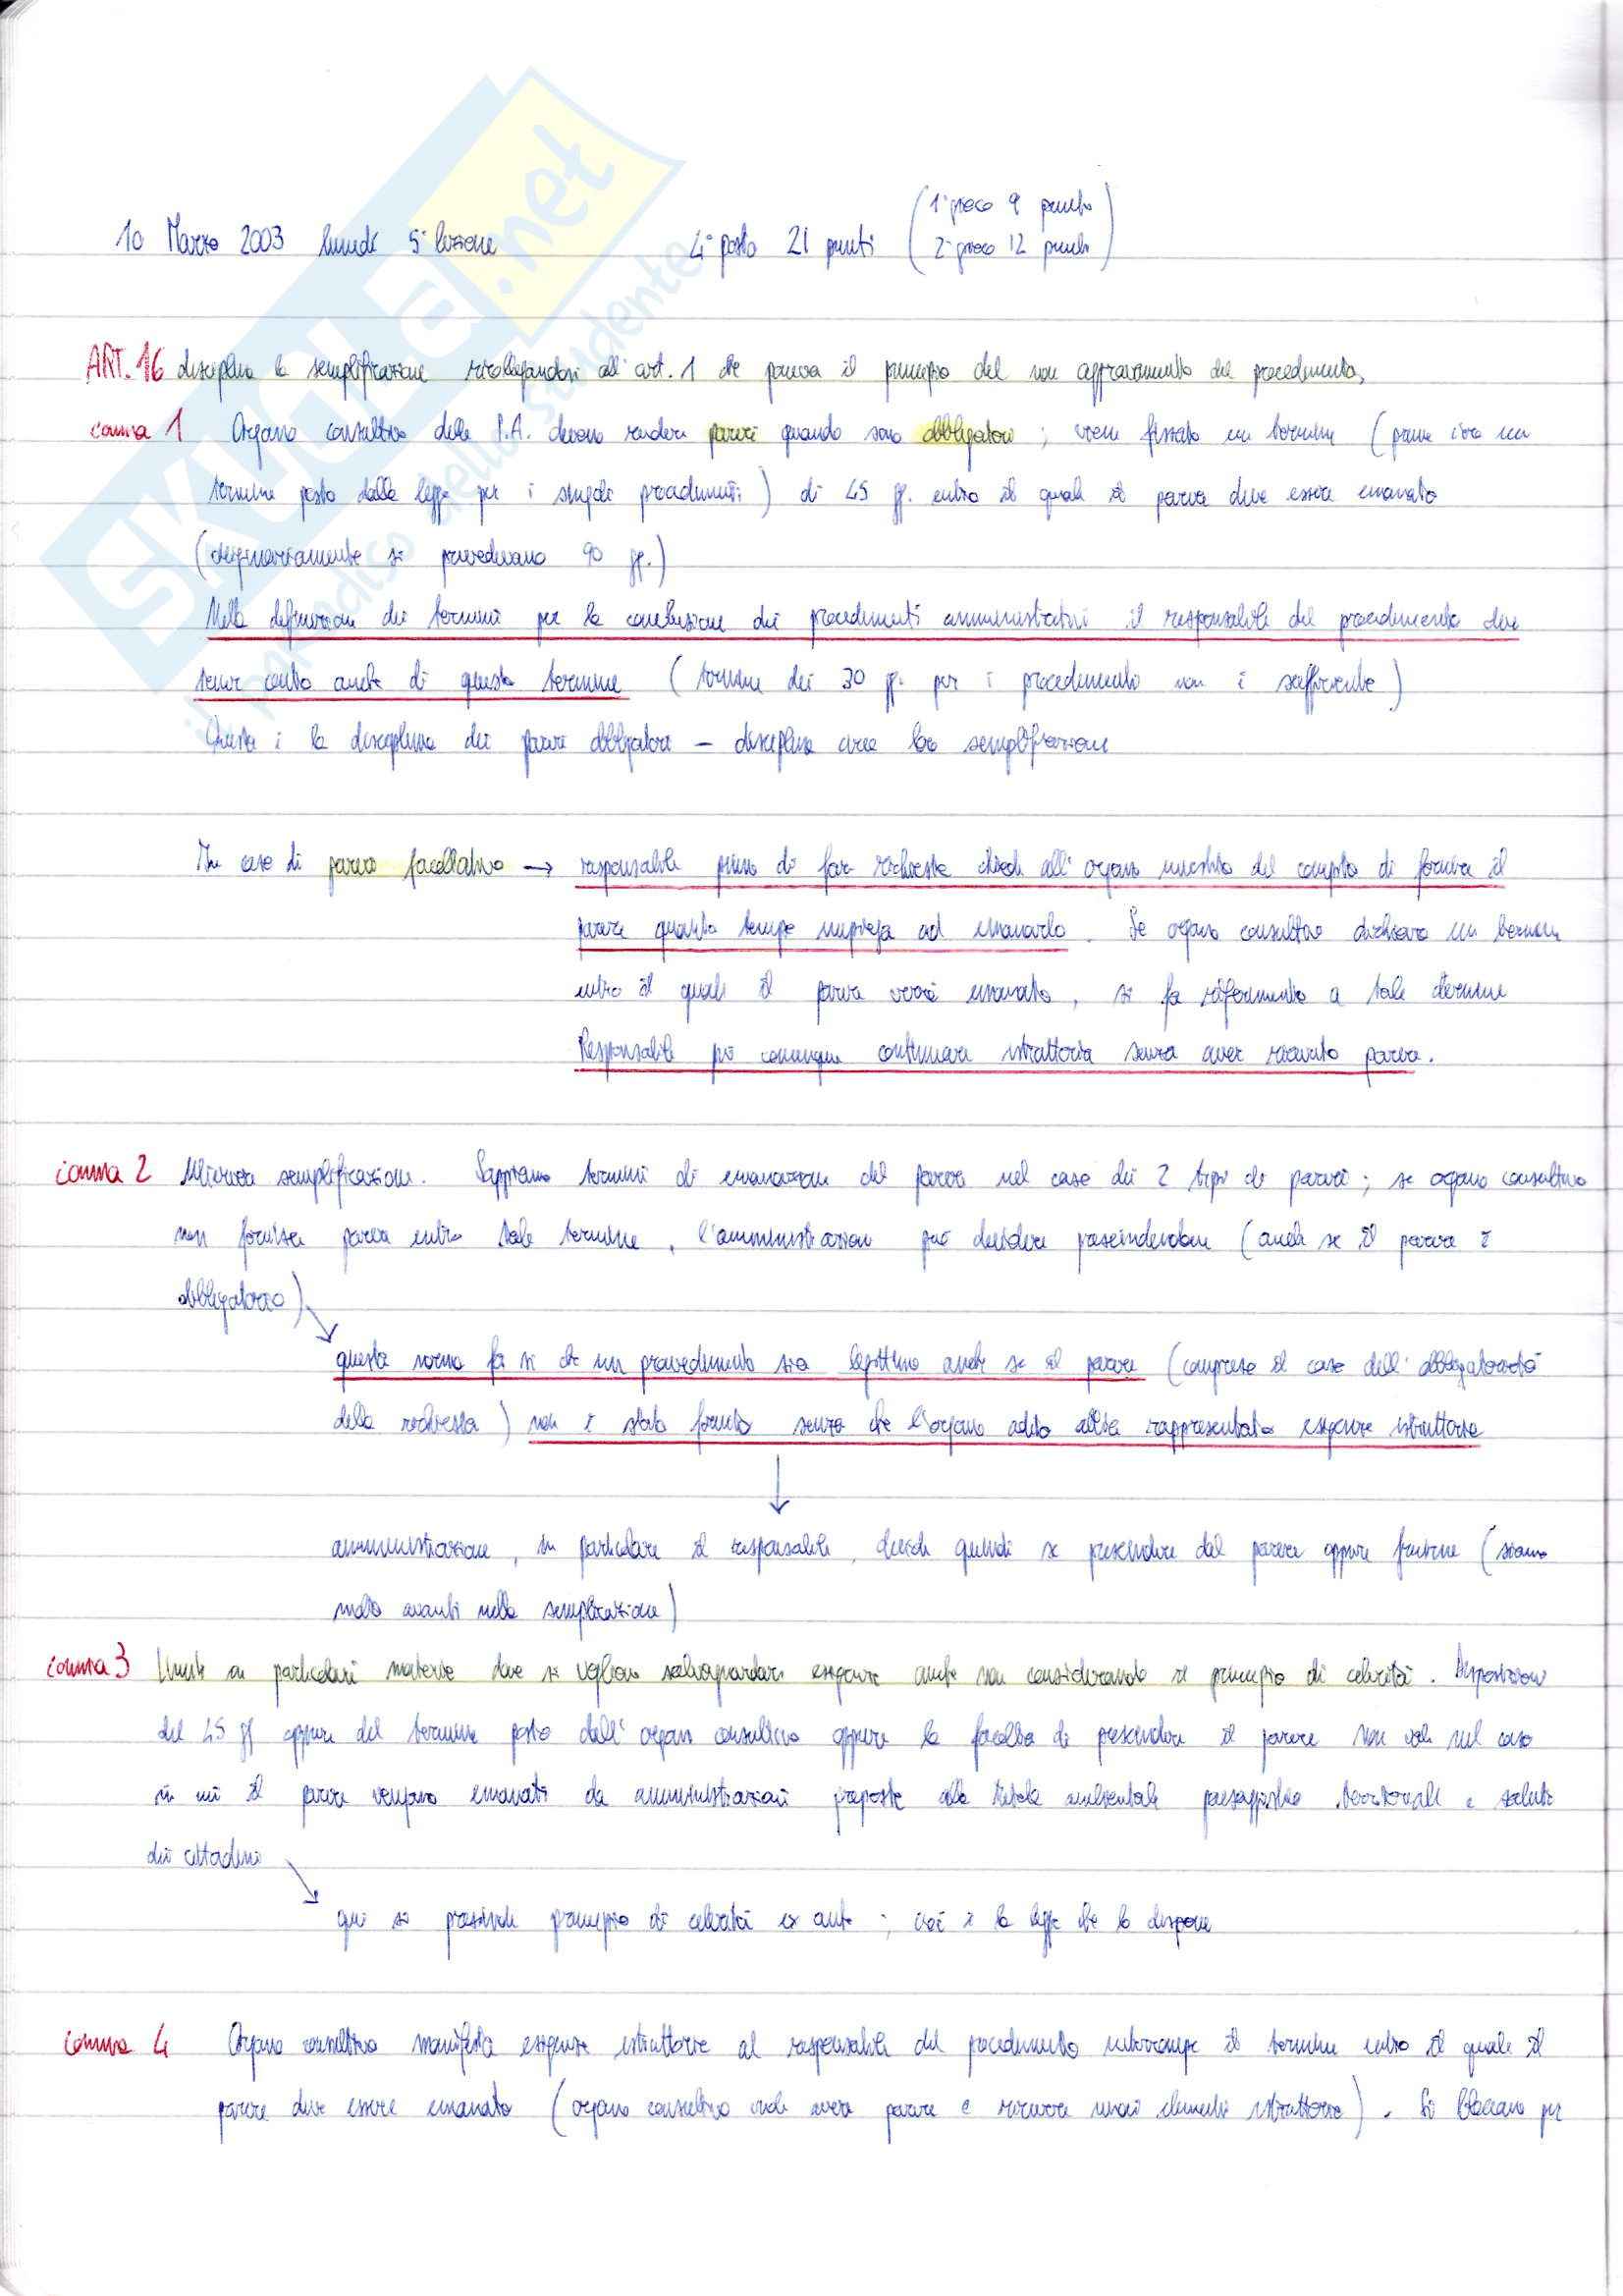 SKUOLA.net
il paradiso dello studente
10 Marzo 2003 lunedì 5ª lezione 4° posto 21 punti (1° greco 9 punti
2° greco 12 punti)
ART. 16 disciplina la semplificazione ricollegandosi all'art. 1 che poneva il principio del non aggravamento del procedimento,
comma 1 Organo consultivo della P.A. devono rendere pareri quando sono obbligatori ; viene fissato un termine (prima c'era un
termine posto dalla legge per i singoli procedimenti) di 45 gg. entro il quale il parere deve essere emanato
(originariamente si prevedevano 90 gg.)
Nella definizione dei termini per la conclusione dei procedimenti amministrativi il responsabile del procedimento deve
tener conto anche di questo termine (termine dei 30 gg. per i procedimento non è sufficiente)
Questa è la disciplina dei pareri obbligatori – disciplina circa loro semplificazione
In caso di parere facoltativo → responsabile prima di fare richiesta chiede all'organo investito del compito di fornire il
parere quanto tempo impiega ad emanarlo. Se organo consultivo dichiara un termine
entro il quale il parere verrà emanato, si fa riferimento a tale termine
Responsabile può comunque continuare istruttoria senza aver ricevuto parere.
comma 2 Ulteriore semplificazione. Sappiamo termini di emanazione del parere nel caso dei 2 tipi di pareri ; se organo consultivo
non fornisce parere entro tale termine, l'amministrazione può decidere prescindendone (anche se il parere è
obbligatorio)
questa norma fa sì che un provvedimento sia legittimo anche se il parere (compreso il caso dell'obbligatorietà
della richiesta) non è stato fornito senza che l'organo adito abbia rappresentato esigenze istruttorie
amministrazione, in particolare il responsabile, decide quindi se prescindere dal parere oppure fruirne (siamo
molto avanti nella semplificazione)
comma 3 Limite in particolari materie dove si vogliono salvaguardare esigenze anche non considerando il principio di celerità. Disposizioni
dei 45 gg oppure del termine posto dall'organo consultivo oppure la facoltà di prescindere il parere non vale nel caso
in cui il parere vengano emanati da amministrazioni preposte alla tutela ambientale paesaggistica territoriale e salute
dei cittadini
qui si prescinde principio di celerità ex ante ; cioè è la legge che lo dispone
comma 4 Organo consultivo manifesta esigenze istruttorie al responsabile del procedimento interrompe il termine entro il quale il
parere deve essere emanato (organo consultivo vuole avere parere e ricevere nuovi elementi istruttori). Si bloccano per